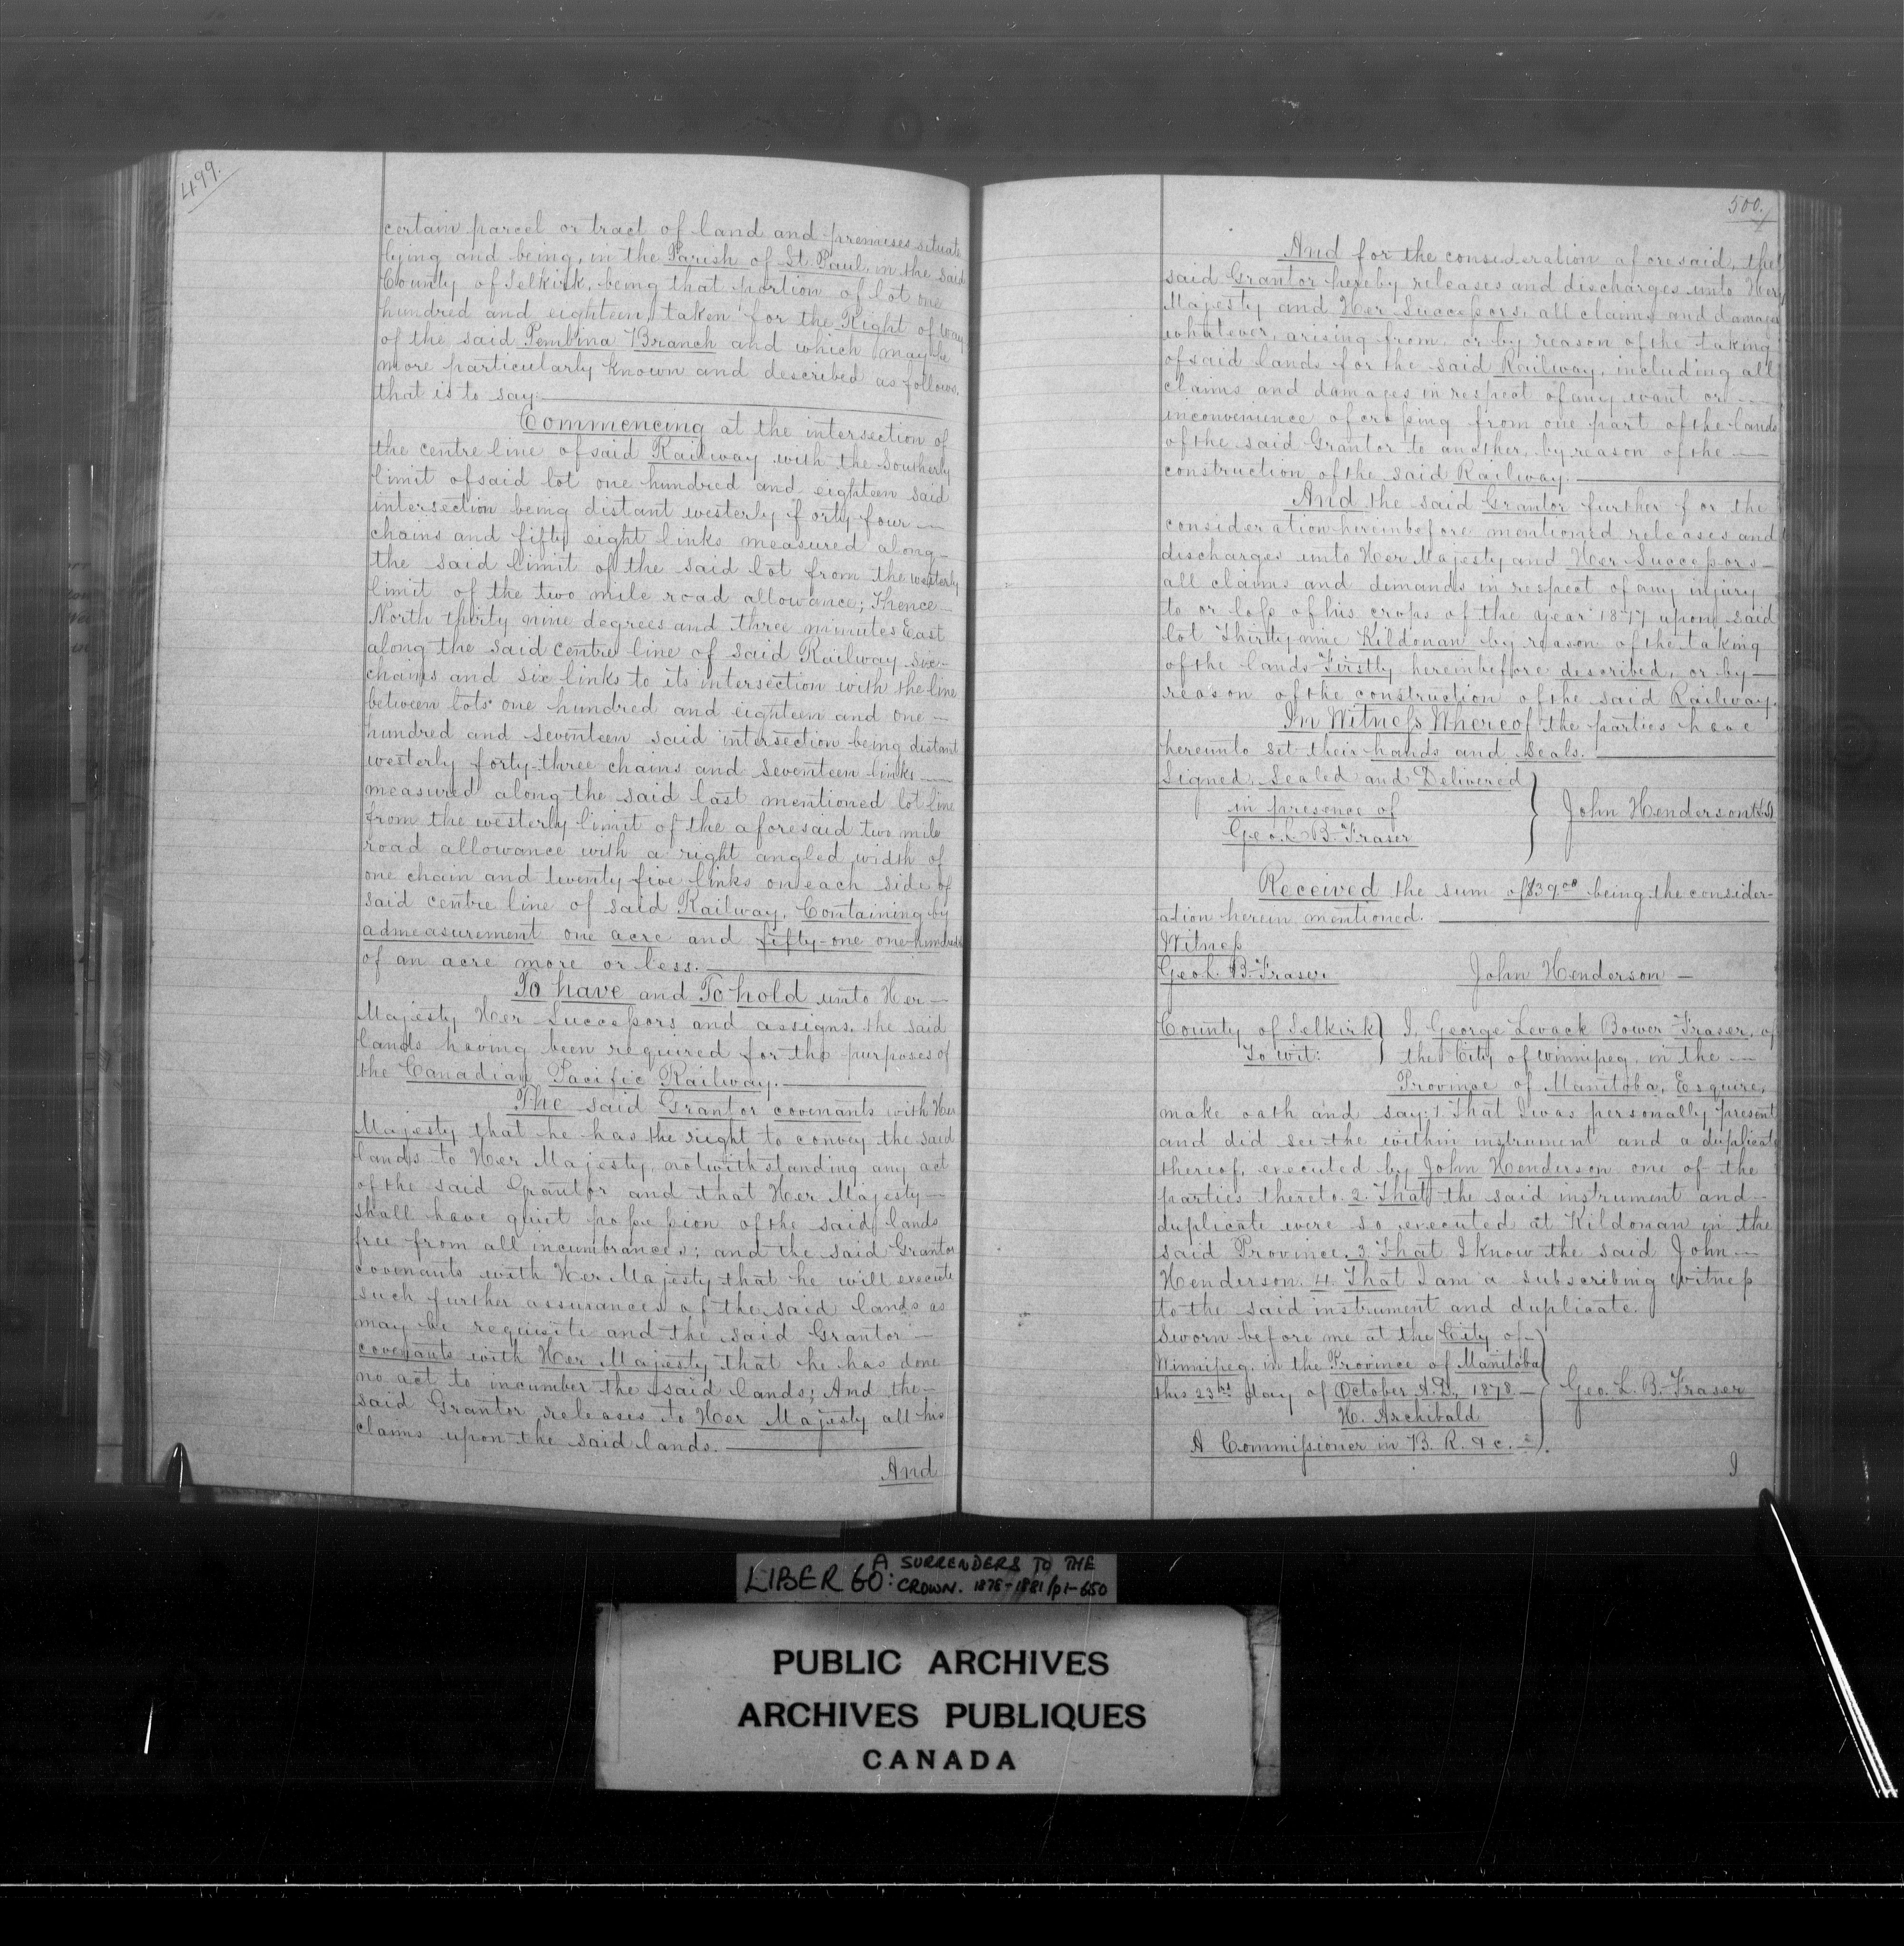 499.
certain parcel or tract of land and premises situate
lying and being, in the Parish of St. Paul, in the said
County of Selkirk, being that portion of lot one
hundred and eighteen, taken for the Right of way
of the said Pembina Branch and which may be
more particularly known and described as follows,
that is to say:
Commencing at the intersection of
the centre line of said Railway with the Southerly
limit of said lot one hundred and eighteen said
intersection being distant westerly forty four
chains and fifty eight links measured along
the said limit of the said lot from the westerly
limit of the two mile road allowance; Thence
North thirty nine degrees and three minutes East
along the said centre line of said Railway six
chains and six links to its intersection with the line
between lots one hundred and eighteen and one
hundred and seventeen said intersection being distant
westerly forty-three chains and seventeen links
measured along the said last mentioned lot line
from the westerly limit of the aforesaid two mile
road allowance with a right angled width of
one chain and twenty five links on each side of
said centre line of said Railway. Containing by
admeasurement one acre and fifty-one one-hundreds
of an acre more or less.
To have and To hold unto Her
Majesty Her Successors and assigns, the said
lands having been required for the purposes of
the Canadian Pacific Railway.
The said Grantor covenants with Her
Majesty that he has the right to convey the said
lands to Her Majesty, notwithstanding any act
of the said Grantor and that Her Majesty
shall have quiet possession of the said lands
free from all incumbrances; and the said Grantor
covenants with Her Majesty that he will execute
such further assurances of the said lands as
may be requisite and the said Grantor
covenants with Her Majesty that he has done
no act to incumber the said lands; And the
said Grantor releases to Her Majesty all his
claims upon the said lands.
And
500.
And for the consideration aforesaid, the
said Grantor hereby releases and discharges unto Her
Majesty and Her Successors, all claims and damages
whatever, arising from, or by reason of the taking
of said lands for the said Railway, including all
claims and damages in respect of any want or
inconvenience of crossing from one part of the lands
of the said Grantor to another, by reason of the
construction of the said Railway.
And the said Grantor further for the
consideration hereinbefore mentioned releases and
discharges unto Her Majesty and Her Successors
all claims and demands in respect of any injury
to or loss of his crops of the year 1877 upon said
lot Thirty nine Kildonan by reason of the taking
of the lands Firstly hereinbefore described, or by
reason of the construction of the said Railway.
In Witness Whereof the parties have
hereunto set their hands and seals.
Signed, Sealed and Delivered
in presence of
Geo. L. B. Fraser
John Henderson
Received the sum of $39.00 being the consider-
ation herein mentioned.
Witness
Geo L. B. Fraser.
John Henderson
County of Selkirk
To wit:
I, George Levack Bower Fraser, of
the City of Winnipeg, in the
Province of Manitoba, Esquire,
make oath and say: 1. That I was personally present
and did see the within instrument and a duplicate
thereof, executed by John Henderson one of the
parties thereto. 2. That the said instrument and
duplicate were so executed at Kildonan in the
said Province. 3. That I know the said John
Henderson. 4. That I am a subscribing witness
to the said instrument and duplicate.
Sworn before me at the City of
Winnipeg, in the Province of Manitoba
this 23rd day of October A.D. 1878
H. Archibald
A Commissioner in B. R. &c.
Geo. L. B. Fraser
I
LIBER 60: A SURRENDERS TO THE
CROWN. 1878-1881/p1-650
PUBLIC ARCHIVES
ARCHIVES PUBLIQUES
CANADA